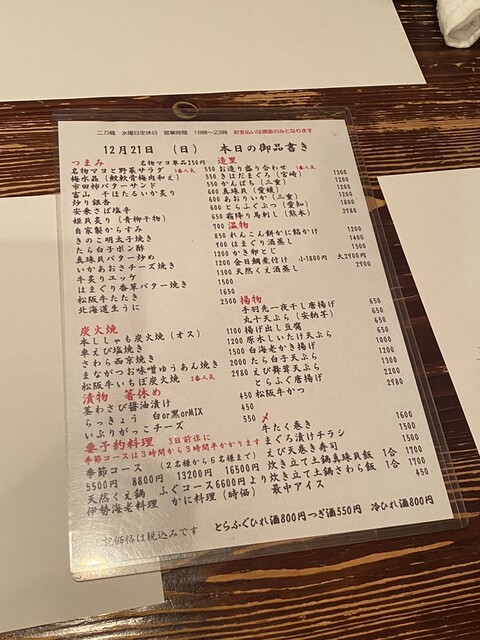 二刀龍 水曜日定休日 営業時間 18時～23時 お支払いは現金のみとなります
12月21日 (日) 本日の御品書き
つまみ 名物マヨ単品250円
名物マヨと野菜サラダ 1番人気 550
梅水晶(鮫軟骨梅肉和え) 550
市田柿バターサンド
富山 干ほたるいか炙り
炒り銀杏
安乗さば塩辛
姫貝炙り(青柳干物)
自家製からすみ
きのこ明太子焼き
たら白子ポン酢
真珠貝バター炒め
いかあおさチーズ焼き
牛炙りユッケ
はまぐり香草バター焼き
松阪牛たたき
北海道生うに
造里
お造り盛り合わせ 1番人気
きはだまぐろ(宮崎)
かんぱち(三重)
真珠貝(愛媛)
あおりいか(三重)
とらふぐぶつ(愛知)
霜降り馬刺し(熊本) 2980
温物
れんこん餅かに餡かけ 1200
はまぐり酒蒸し 1400
かき卵とじ
金目鯛煮付け 小1800円 大2900円
天然くえ酒蒸し 2980
揚物
手羽先一夜干し唐揚げ 650
丸十天ぷら(安納芋) 650
揚げ出し豆腐 650
原木しいたけ天ぷら
白海老かき揚げ
たら白子天ぷら
えび舞茸天ぷら
とらふぐ唐揚げ
松阪牛かつ 2980
炭火焼
本ししゃも炭火焼(オス) 1100
車えび塩焼き 1200
さわら西京焼き 1500
まながつお味噌ゆうあん焼き 2000
松阪牛いちぼ炭火焼 1番人気 2980
漬物 箸休め
茎わさび醤油漬け 450
らっきょう 白or黒orMIX 450
いぶりがっこチーズ 550
〆
牛たく巻き 1600
まぐろ漬けチラシ 1500
えび天巻き寿司 1500
炊き立て土鍋真珠貝飯 1合 1700
炊き立て土鍋さわら飯 1合 1700
最中アイス 450
要予約料理 3日前迄に
季節コースは3時間から3時間半かかります
季節コース (2名様から6名まで)
5500円 8800円 13200円 16500円
天然くえ鍋 ふぐコース6600円より
伊勢海老料理 かに料理(時価)
記価格は税込みです とらふぐひれ酒800円つぎ酒550円 冷ひれ酒800円